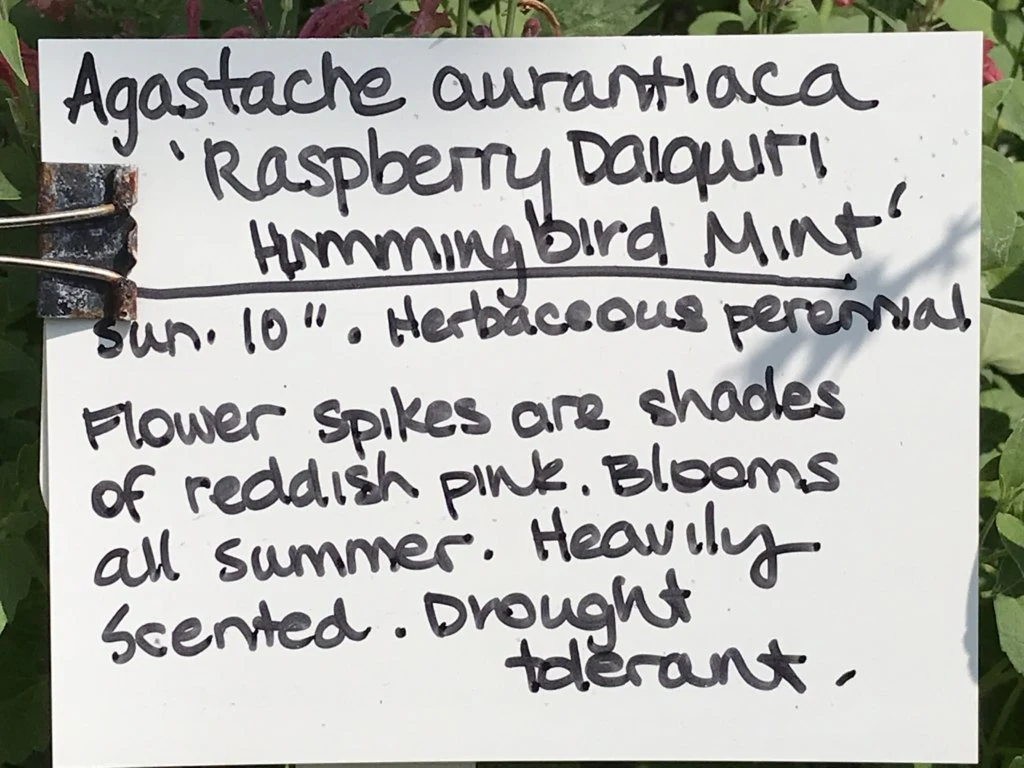 Agastache aurantiaca
'Raspberry Daiquiri
Hummingbird Mint'
Sun. 10". Herbaceous perennial
Flower spikes are shades
of reddish pink. Blooms
all summer. Heavily
Scented. Drought
tolerant.